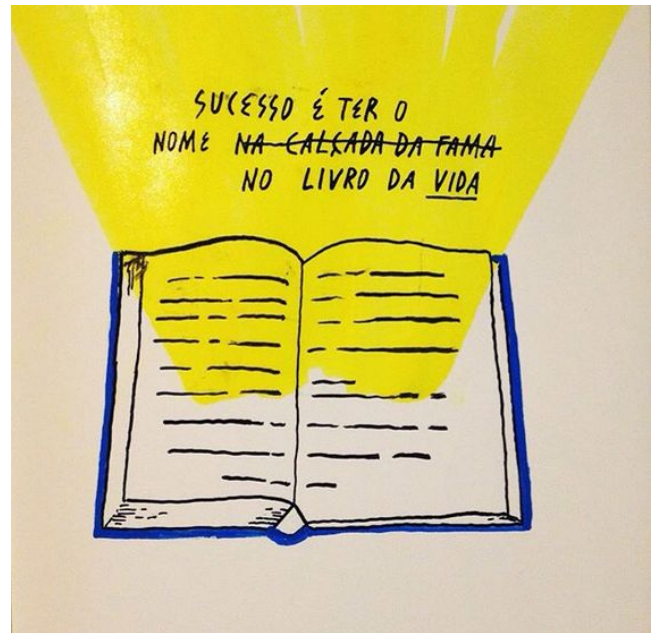 SUCESSO É TER O
NOME NA CALÇADA DA FAMA
NO LIVRO DA VIDA